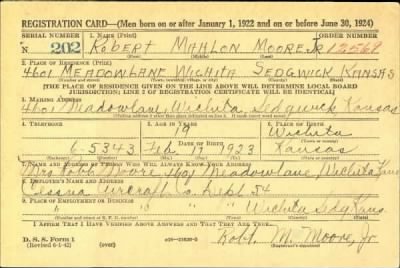 REGISTRATION CARD—(Men born on or after January 1, 1922 and on or before June 30, 1924)
SERIAL NUMBER 1. NAME (Print) ORDER NUMBER
N 202 ROBERT MAHLON MOORE, JR 12569
2. PLACE OF RESIDENCE (Print)
4601 MEADOWLANE WICHITA SEDGWICK KANSAS
[THE PLACE OF RESIDENCE GIVEN ON THE LINE ABOVE WILL DETERMINE LOCAL BOARD
JURISDICTION; LINE 2 OF REGISTRATION CERTIFICATE WILL BE IDENTICAL]
3. MAILING ADDRESS
4601 Meadowlane, Wichita Sedgwick Kansas
4. TELEPHONE 5. AGE IN YEARS 6. PLACE OF BIRTH
19 Wichita
DATE OF BIRTH
6-5343 Feb 19 1923 Kansas
7. NAME AND ADDRESS OF PERSON WHO WILL ALWAYS KNOW YOUR ADDRESS
Mrs Robt Moore 4601 Meadowlane, Wichita Kans
8. EMPLOYER'S NAME AND ADDRESS
Cessna Aircraft Co Dept 54
9. PLACE OF EMPLOYMENT OR BUSINESS
" " " Wichita Sedg Kans
I AFFIRM THAT I HAVE VERIFIED ABOVE ANSWERS AND THAT THEY ARE TRUE.
D. S. S. Form 1
(Revised 6-1-42) (over)
Robt. M. Moore, Jr